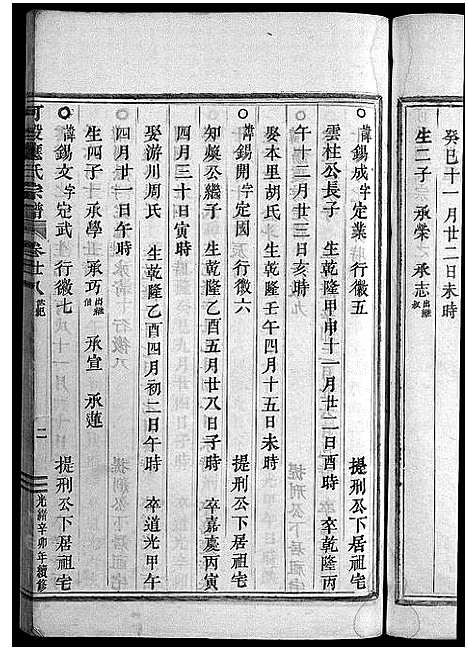 癸巳十一月廿二日未時
生二子 承榮 承志 出繼叔
○諱錫成字定業 行徽五 提刑公下居祖宅
雲柱公長子 生乾隆甲申十一月廿二日酉時 卒乾隆丙
午十二月廿三日亥時
娶本里胡氏 生乾隆壬午四月十五日未時
○諱錫開字定國 行徽六 提刑公下居祖宅
知嶼公繼子 生乾隆乙酉五月廿八日子時 卒嘉慶丙寅
四月三十日寅時
娶游川周氏 生乾隆乙酉四月初二日午時 卒道光甲午
四月廿一日午時
生四子 承學 承巧 出繼伯 承宣 承蓮
○諱錫文字定武 行徽七 提刑公下居祖宅
應氏宗譜 卷廿八 世紀 二 光緒辛卯年續修